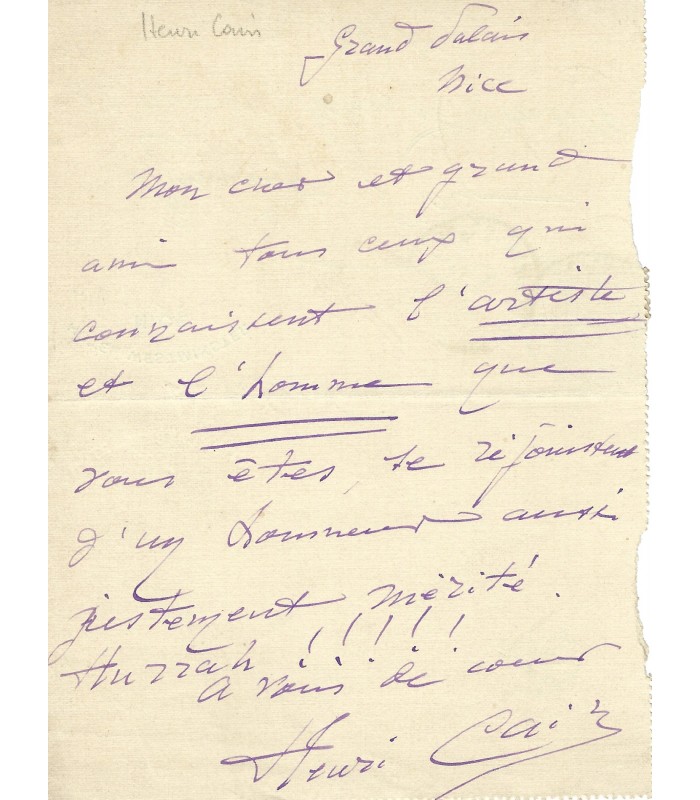 Henri Cain
Grand Palais
Nice
Mon cher et grand
ami tous ceux qui
connaissent l'artiste
et l'homme que
vous êtes, se réjouissent
d'un honneur aussi
justement mérité.
Hurrah !!!!!
A vous de cœur
Henri Cain